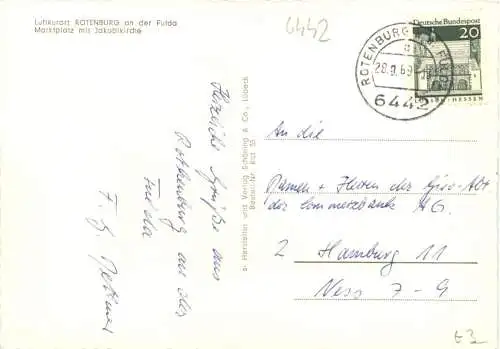 Luftkurort ROTENBURG an der Fulda
Marktplatz mit Jakobikirche
6442
ROTENBURG
28.9.69
6442
Deutsche Bundespost
20
HESSEN
Herzliche Grüße aus
Rothenburg an der
Fulda
Hersteller und Verlag Schöning & Co · Lübeck
An die
Damen + Herren der Giro-Abt
der Commerzbank AG.
2 Hamburg 11
Ness 7-9